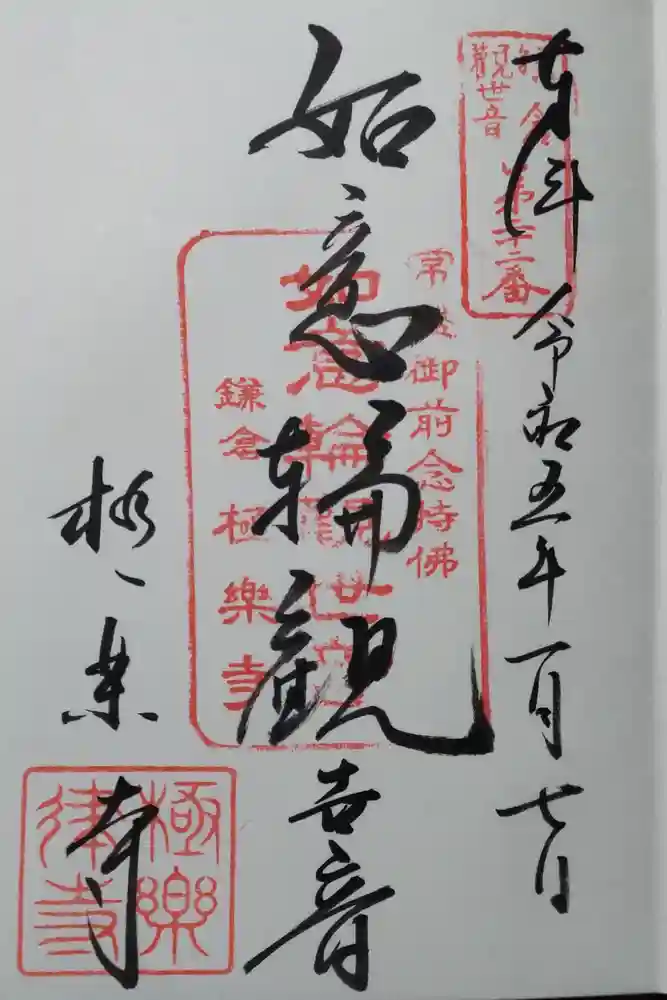 奉拝 令和五年一月七日
鎌倉
觀世音
第廿二番
如意輪觀世音
常盤御前念持佛
如意輪觀世音
鎌倉 極樂寺
極楽寺
極樂
律寺